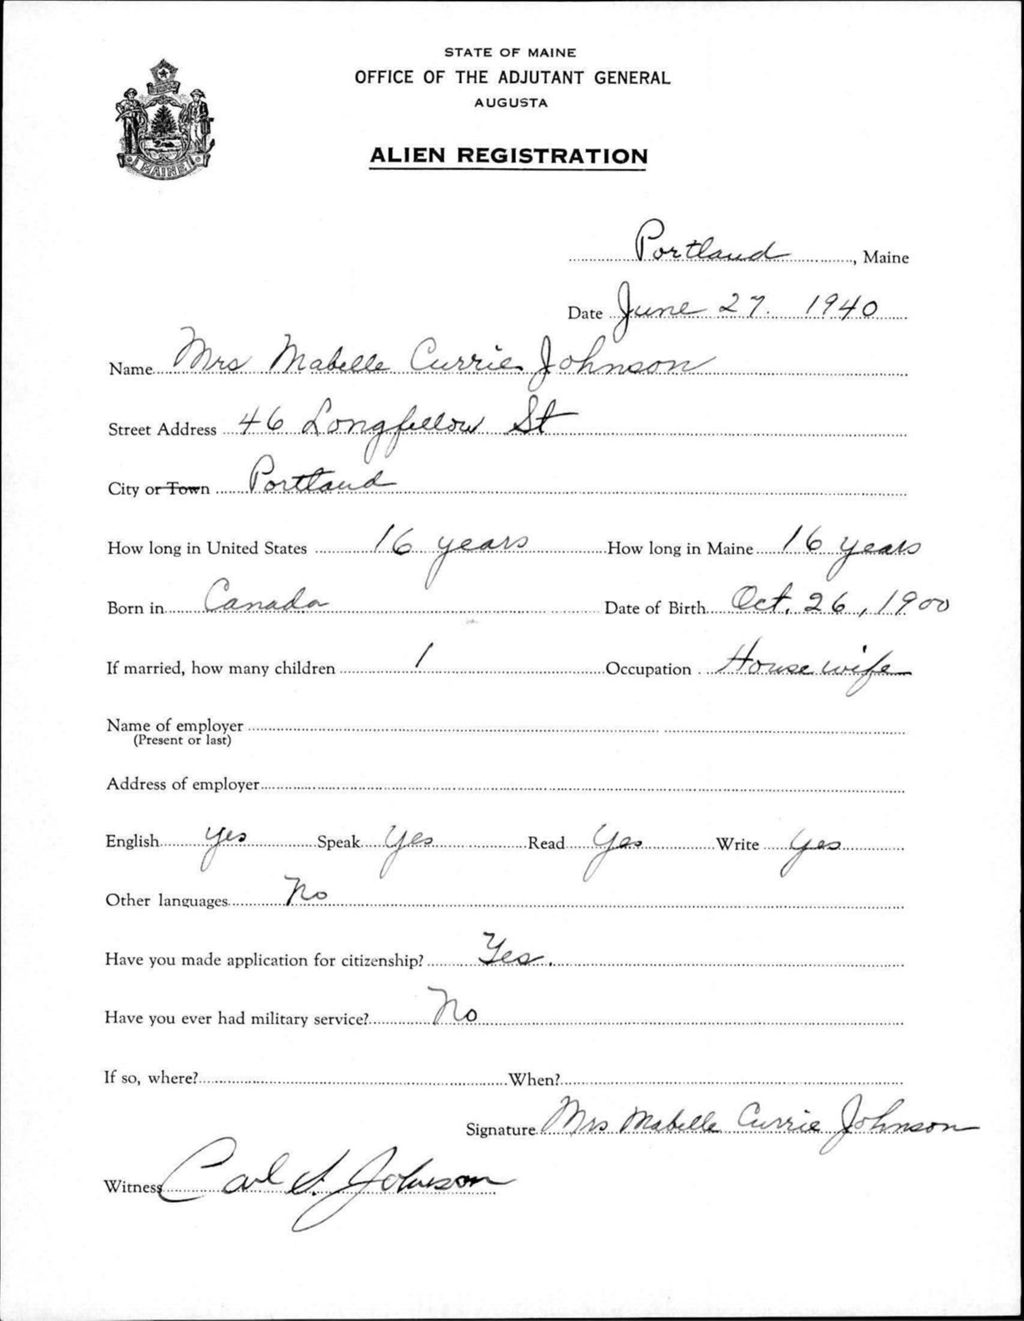 STATE OF MAINE
OFFICE OF THE ADJUTANT GENERAL
AUGUSTA
ALIEN REGISTRATION
MAINE
Portland, Maine
Date June 27. 1940
Name Mrs Mabelle Currie Johnson
Street Address 46 Longfellow St
City or Town Portland
How long in United States 16 years How long in Maine 16 years
Born in Canada Date of Birth Oct. 26, 1900
If married, how many children 1 Occupation Housewife
Name of employer
(Present or last)
Address of employer
English yes Speak Yes Read Yes Write yes
Other languages No
Have you made application for citizenship? Yes.
Have you ever had military service? No
If so, where? When?
Signature Mrs Mabelle Currie Johnson
Witness Carl S. Johnson